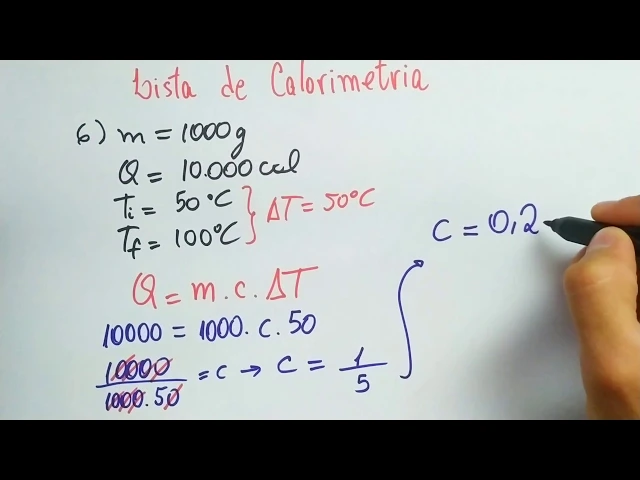 Lista de Calorimetria
6) m = 1000g
Q = 10.000 cal
Ti = 50°C
Tf = 100°C
ΔT = 50°C
Q = m.c.ΔT
10000 = 1000.c.50
10000 / 1000.50 = c → c = 1/5
c = 0,2